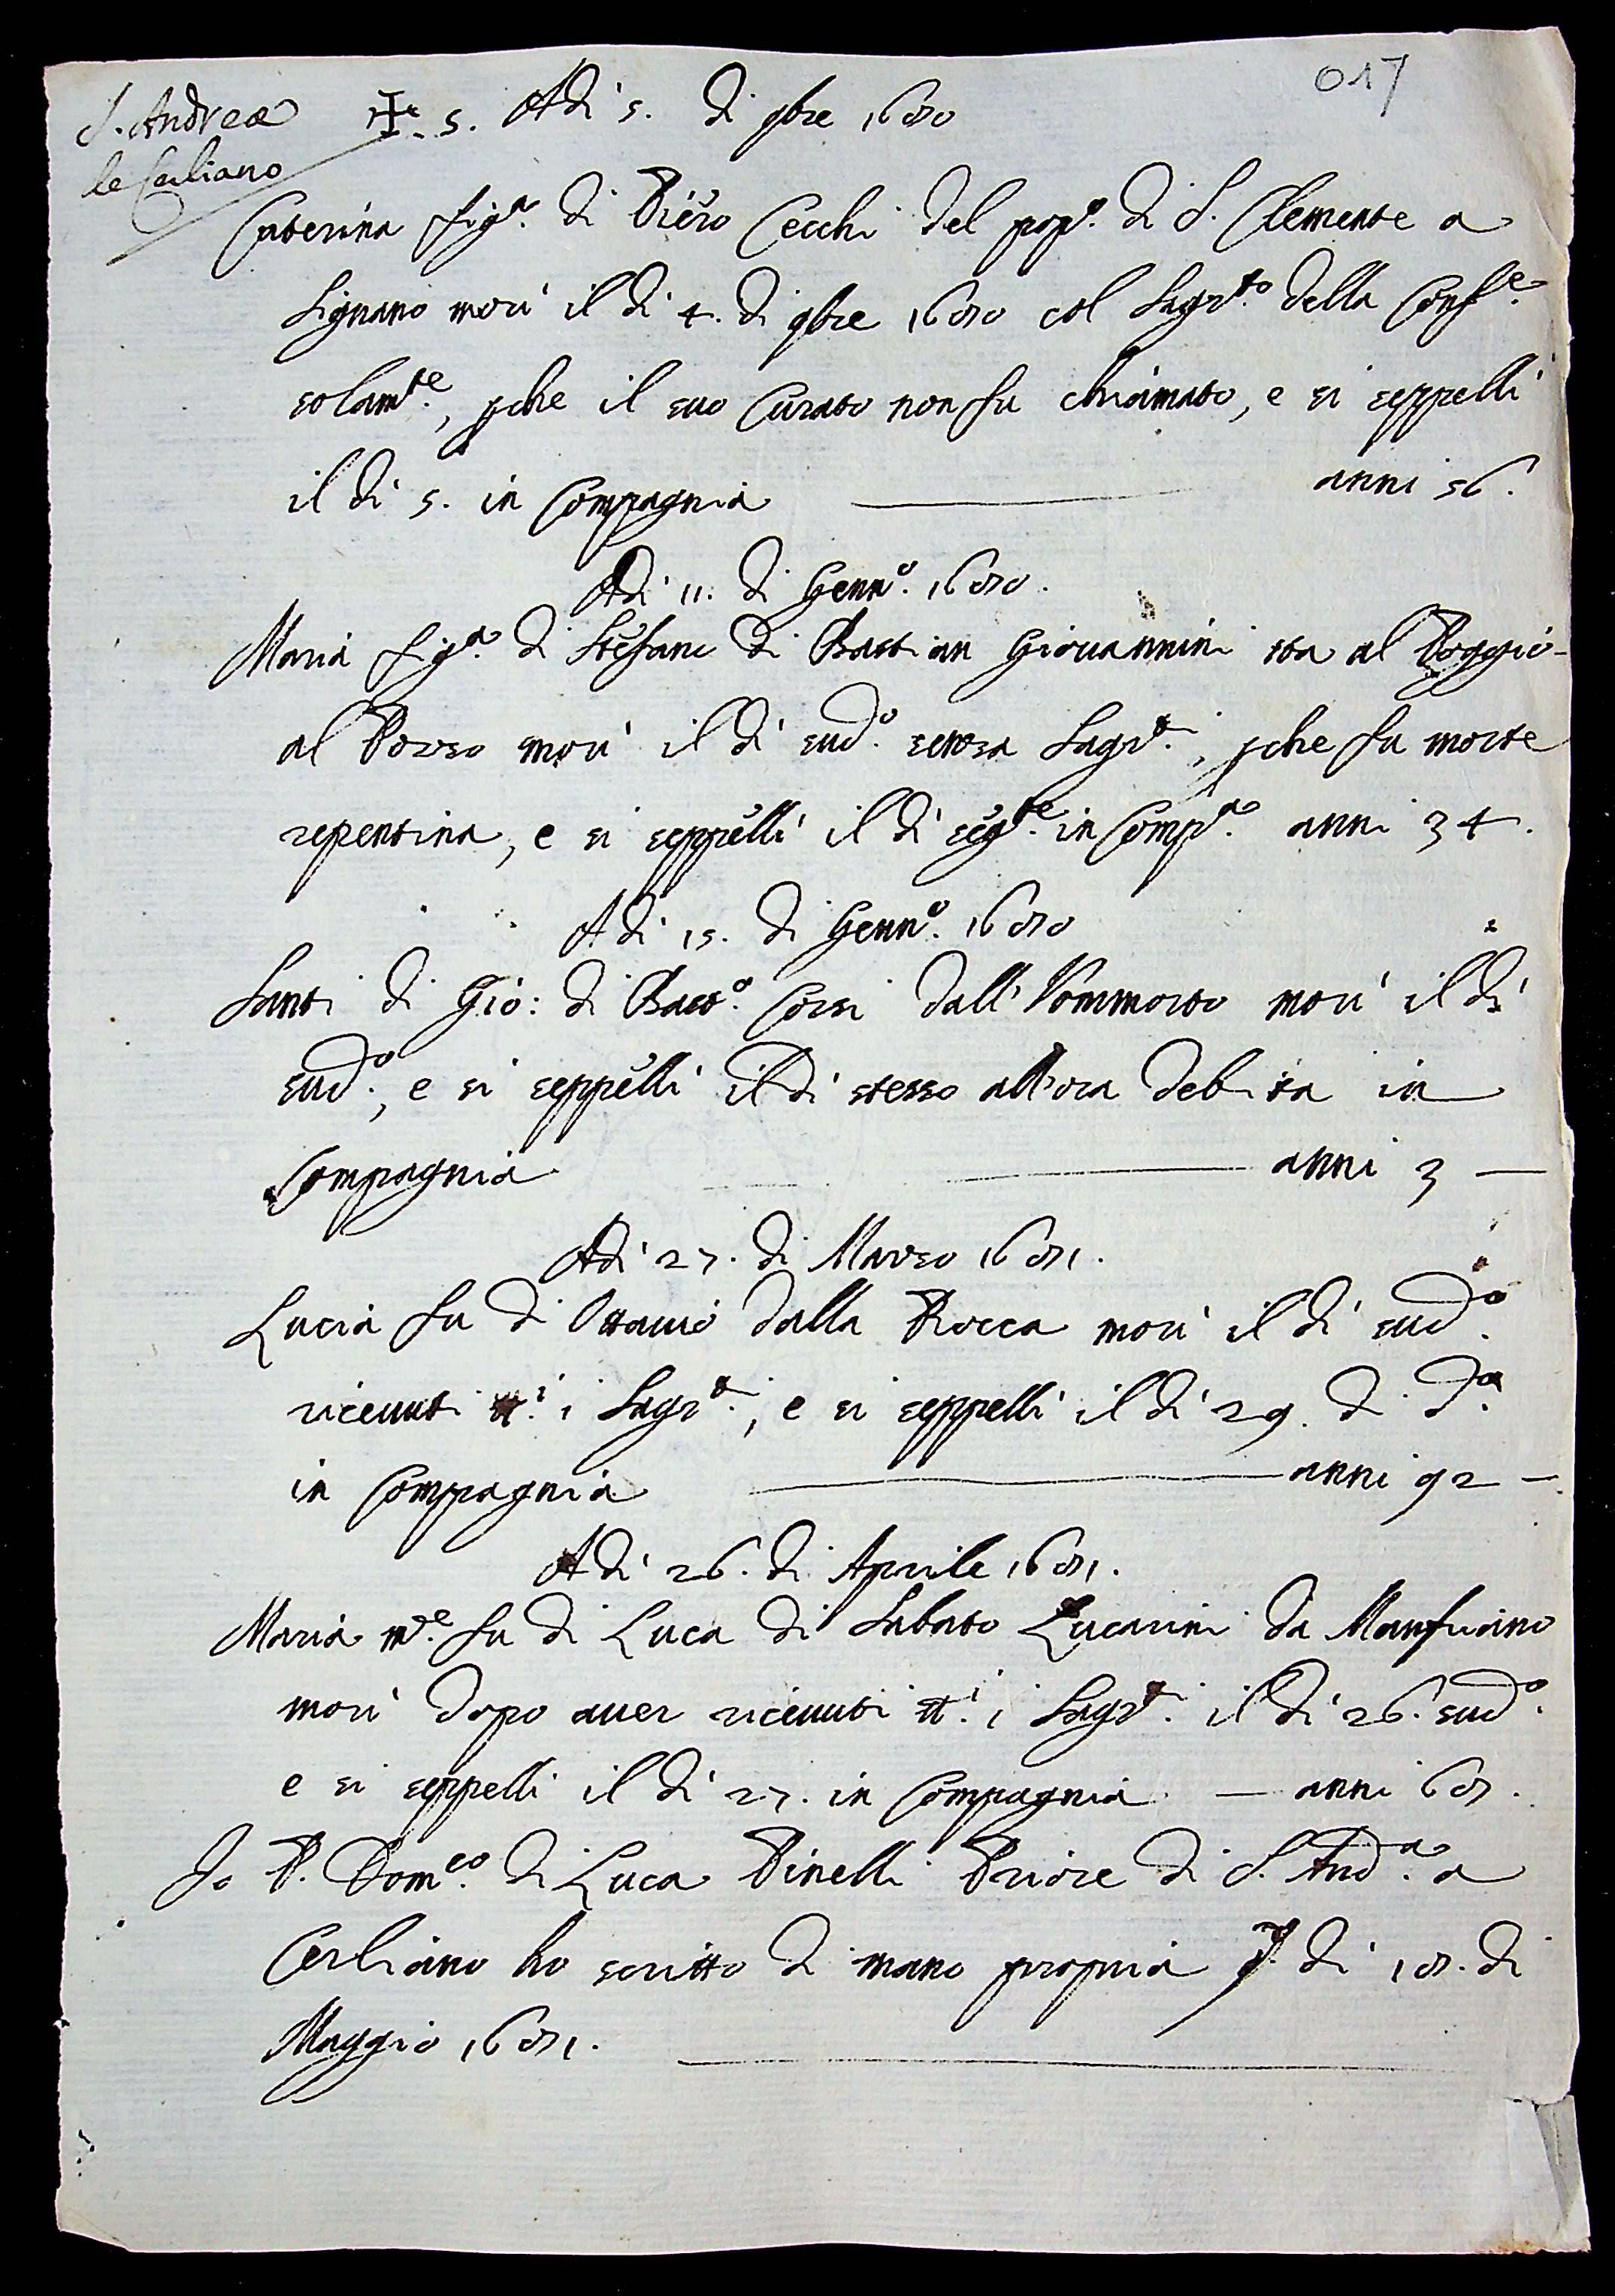 017
S. Andrea
le Cerliano
✠. 5. Adi 5. di 9bre 1680
Caterina figa. di Piero Cecchi del popo. di S. Clemente a
Signano morì il dì 4. di 9bre 1680 col Sagrto. della Confe.
solamte., pche il suo Curato non fu chiamato, e si seppellì
il dì 5. in Compagnia — anni 56.
Adì 11. di Genno. 1680.
Maria figa. di Stefano di Bastian Giovannini sta al Poggio
al Pozzo morì il dì sudo. senza Sagrt.i, pche fu morte
repentina, e si seppellì il dì segte. in Compa. anni 34.
Adì 15. di Genno. 1680
Santi di Gio: di Basto. Corsi dall'Vommorto morì il dì
sudo., e si seppellì il dì stesso all'ora debita in
Compagnia — anni 3 —
Adì 27. di Marzo 1681.
Lucia fu di Ottavio dalla Rocca morì il dì sudo.
ricevuti tti. i Sagrti., e si seppellì il dì 29. di do.
in Compagnia — anni 92 —
Adì 26. di Aprile 1681.
Maria me. fu di Luca di Sabato Lucarini da Manfriano
morì dopo aver ricevuti tti. i Sagrti. il dì 26. sudo.
e si seppellì il dì 27. in Compagnia — anni 68.
Io P. Domco. di Luca Pinelli Priore di S. Anda. a
Cerliano ho scritto di mano propria q. dì 18. di
Maggio 1681.